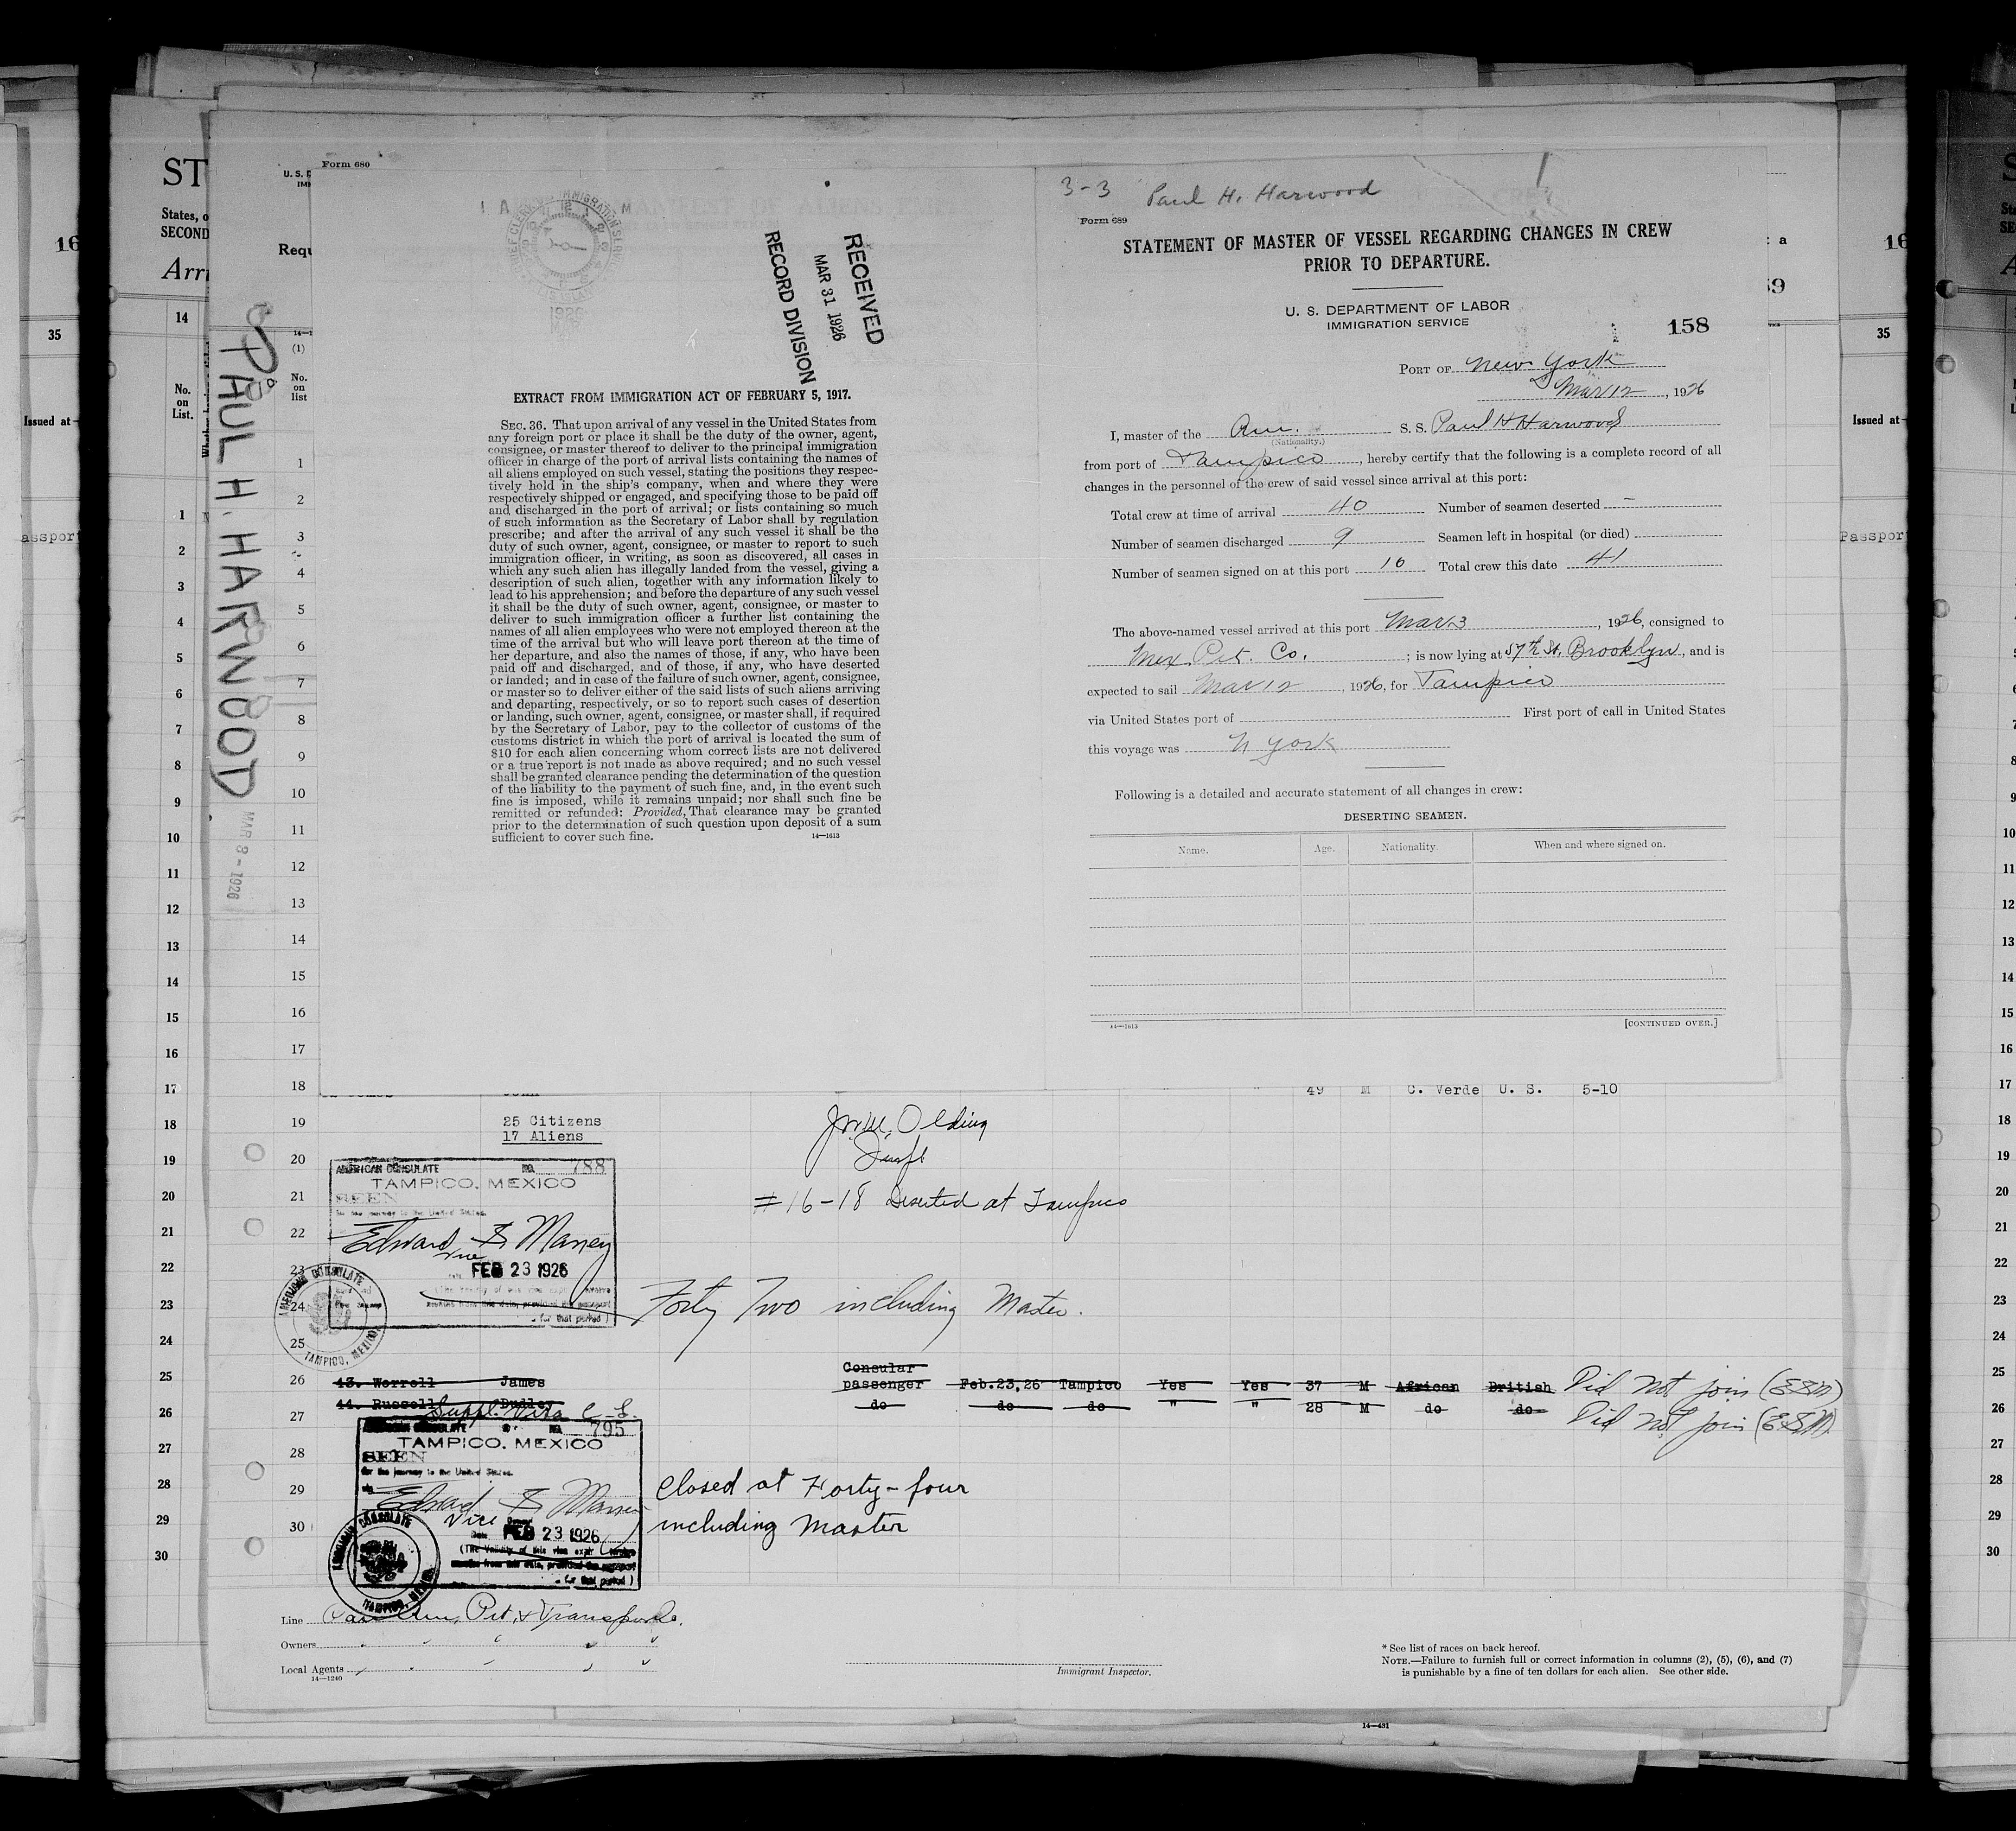 Form 680
RECEIVED
MAR 31 1926
RECORD DIVISION
1926
EXTRACT FROM IMMIGRATION ACT OF FEBRUARY 5, 1917.
SEC. 36. That upon arrival of any vessel in the United States from
any foreign port or place it shall be the duty of the owner, agent,
consignee, or master thereof to deliver to the principal immigration
officer in charge of the port of arrival lists containing the names of
all aliens employed on such vessel, stating the positions they respec-
tively hold in the ship's company, when and where they were
respectively shipped or engaged, and specifying those to be paid off
and discharged in the port of arrival; or lists containing so much
of such information as the Secretary of Labor shall by regulation
prescribe; and after the arrival of any such vessel it shall be the
duty of such owner, agent, consignee, or master to report to such
immigration officer, in writing, as soon as discovered, all cases in
which any such alien has illegally landed from the vessel, giving a
description of such alien, together with any information likely to
lead to his apprehension; and before the departure of any such vessel
it shall be the duty of such owner, agent, consignee, or master to
deliver to such immigration officer a further list containing the
names of all alien employees who were not employed thereon at the
time of the arrival but who will leave port thereon at the time of
her departure, and also the names of those, if any, who have been
paid off and discharged, and of those, if any, who have deserted
or landed; and in case of the failure of such owner, agent, consignee,
or master so to deliver either of the said lists of such aliens arriving
and departing, respectively, or so to report such cases of desertion
or landing, such owner, agent, consignee, or master shall, if required
by the Secretary of Labor, pay to the collector of customs of the
customs district in which the port of arrival is located the sum of
$10 for each alien concerning whom correct lists are not delivered
or a true report is not made as above required; and no such vessel
shall be granted clearance pending the determination of the question
of the liability to the payment of such fine, and, in the event such
fine is imposed, while it remains unpaid; nor shall such fine be
remitted or refunded: Provided, That clearance may be granted
prior to the determination of such question upon deposit of a sum
sufficient to cover such fine.
14—1613
3-3 Paul H. Harwood
Form 689
STATEMENT OF MASTER OF VESSEL REGARDING CHANGES IN CREW
PRIOR TO DEPARTURE.
U. S. DEPARTMENT OF LABOR
IMMIGRATION SERVICE
158
PORT OF New York
Mar 12, 1926
I, master of the Am. S. S. Paul H Harwood
(Nationality.)
from port of Tampico, hereby certify that the following is a complete record of all
changes in the personnel of the crew of said vessel since arrival at this port:
Total crew at time of arrival 40 Number of seamen deserted —
Number of seamen discharged 9 Seamen left in hospital (or died)
Number of seamen signed on at this port 10 Total crew this date 41
The above-named vessel arrived at this port Mar 3, 1926, consigned to
Mex. Pet. Co. ; is now lying at 57th St. Brooklyn, and is
expected to sail Mar 12, 1926, for Tampico
via United States port of First port of call in United States
this voyage was N York
Following is a detailed and accurate statement of all changes in crew:
DESERTING SEAMEN.
Name. Age. Nationality. When and where signed on.
14—1613 [CONTINUED OVER.]
PAUL H. HARWOOD
MAR 8 - 1926
49 M C. Verde U. S. 5-10
25 Citizens
17 Aliens
Olding
#16-18 Deserted at Tampico
AMERICAN CONSULATE NO. 788
TAMPICO, MEXICO
SEEN
for the journey to the United States.
Edward S Maney
Vice
FEB 23 1926
AMERICAN CONSULATE
TAMPICO, MEXICO
Forty Two including Master.
43. Worrell James Consular passenger Feb.23,26 Tampico Yes Yes 37 M African British Did not join (ESM)
44. Russell Dudley do do do " " 28 M do do Did not join (ESM)
Suppl. Visa
AMERICAN CONSULATE NO. 795
TAMPICO, MEXICO
SEEN
for the journey to the United States.
Edward S Maney
Vice
FEB 23 1926
(The validity of this visa expires
months from this date, provided the passport
for that period)
AMERICAN CONSULATE
TAMPICO, MEXICO
Closed at Forty-four
including Master
Line Pan Am. Pet. & Transp. Co.
Owners
Local Agents
14—1240
Immigrant Inspector.
* See list of races on back hereof.
NOTE.—Failure to furnish full or correct information in columns (2), (5), (6), and (7)
is punishable by a fine of ten dollars for each alien. See other side.
14—431